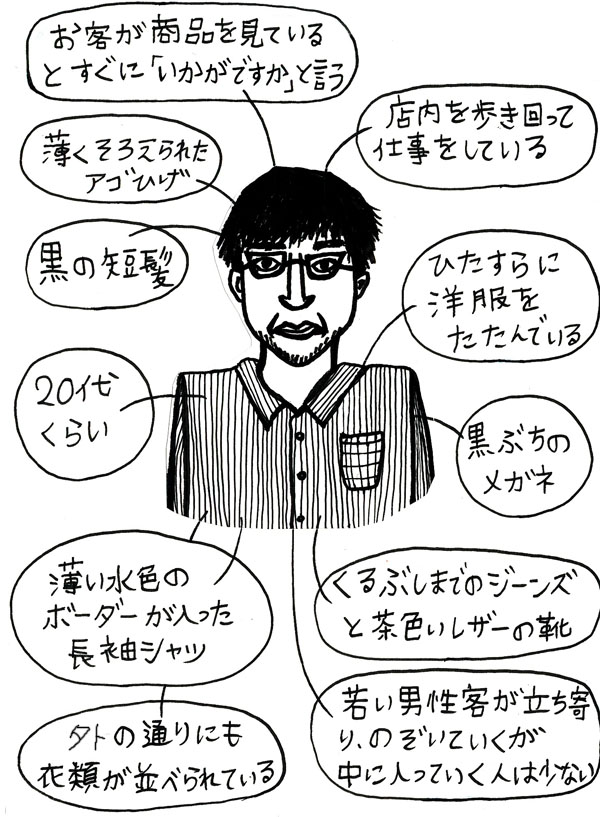 お客が商品を見ている
とすぐに「いかがですか」と言う
店内を歩き回って
仕事をしている
薄くそろえられた
アゴひげ
黒の短髪
ひたすらに
洋服を
たたんでいる
20代
くらい
黒ぶちの
メガネ
薄い水色の
ボーダーが入った
長袖シャツ
くるぶしまでのジーンズ
と茶色いレザーの靴
外の通りにも
衣類が並べられている
若い男性客が立ち寄
り、のぞいていくが
中に入っていく人は少ない